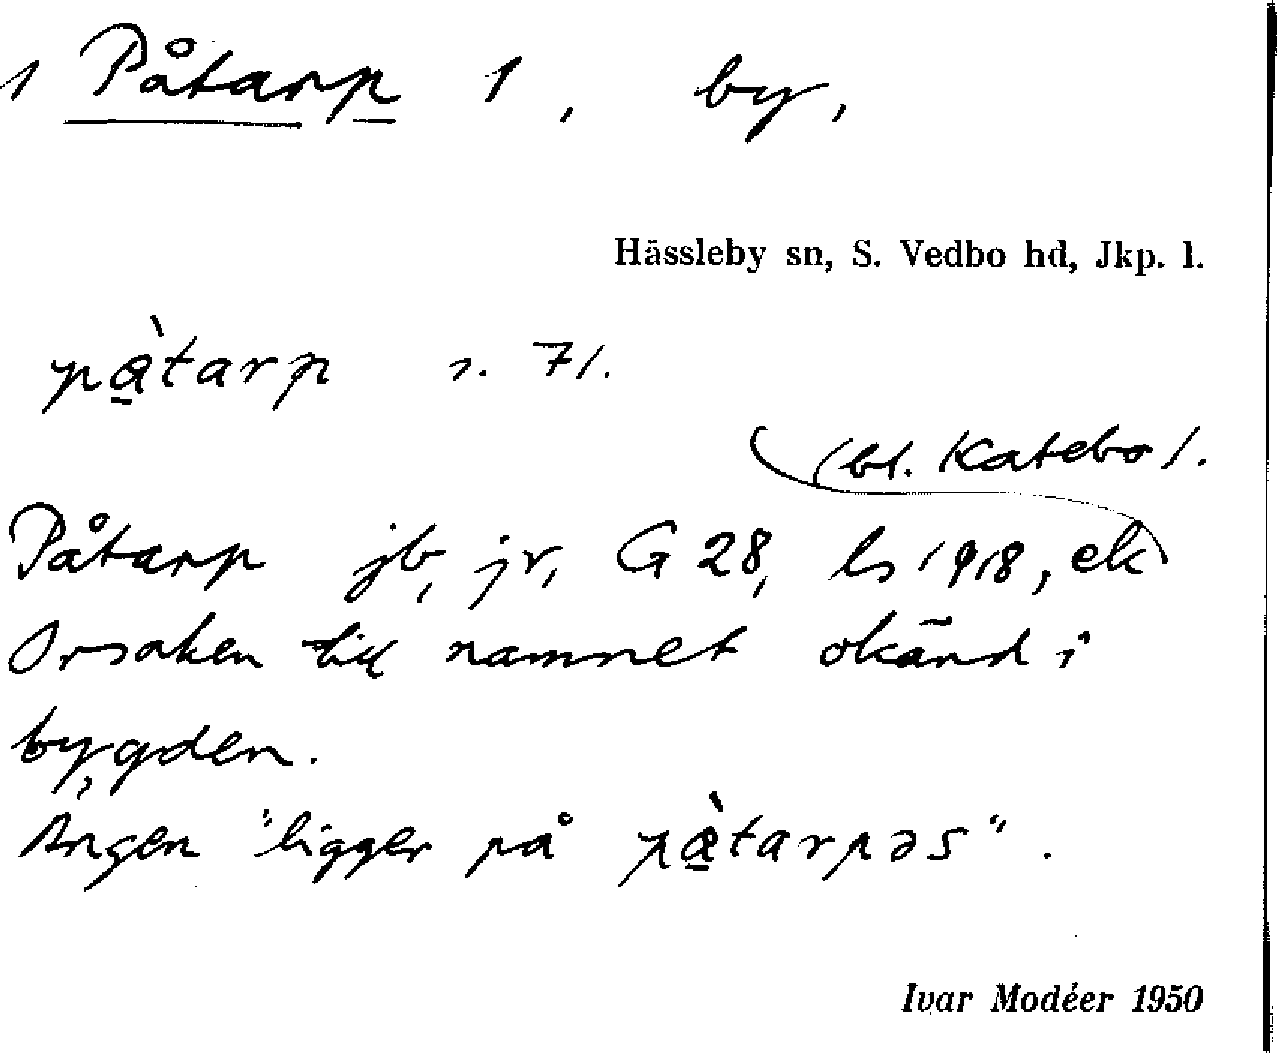 1 Påtarp 1, by,
Hässleby sn, S. Vedbo hd, Jkp. l.
pàtarp s. 71.
(bl. Katebo).
Påtarp jb, jr, G 28, ls 1918, ek
Orsaken till namnet okänd i
bygden.
Ängen "ligger på pàtarpəs".
Ivar Modéer 1950